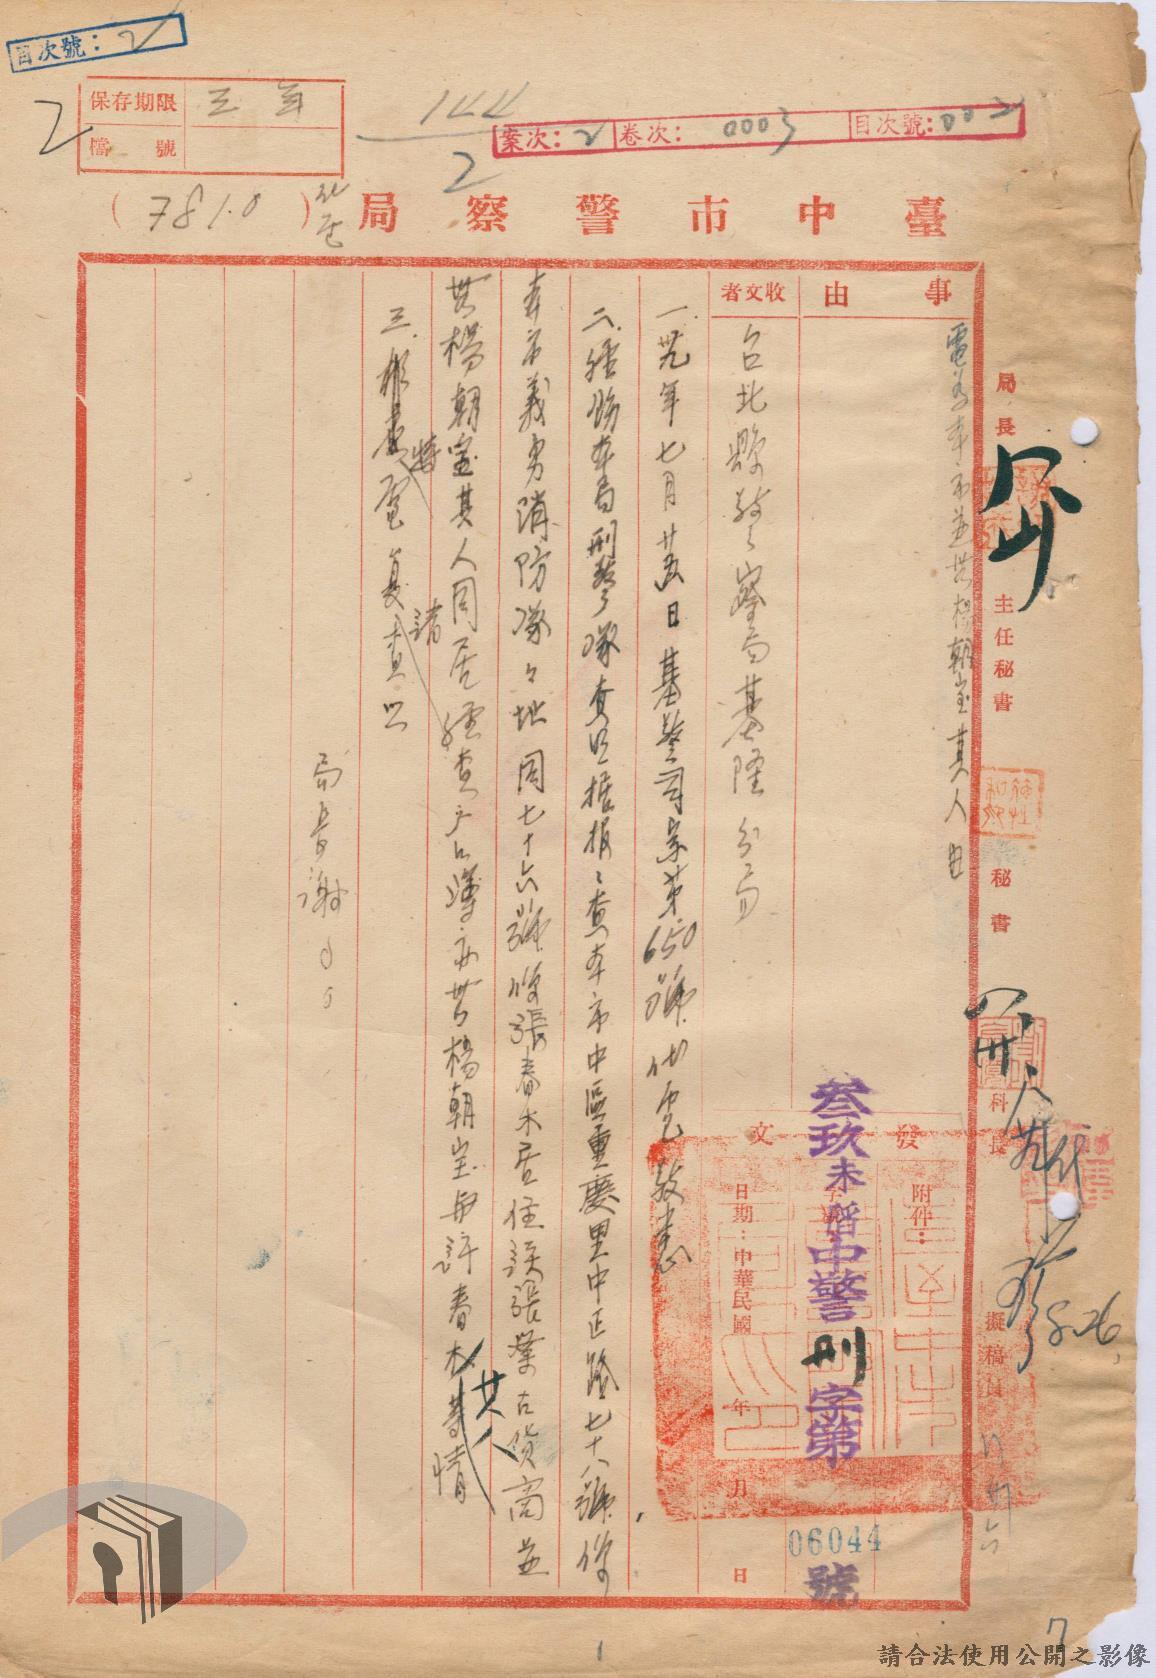 目次號：2
保存期限 三年
檔號
2
144
2
案次：2 卷次：0003 目次號：002
臺中市警察局
(781.0)
事由
電复本市並無楊朝宝其人由
收文者
台北縣警察局基隆分局
發文
附件：
日期：中華民國 年 月 日
叁玖未 中警刑字第
06044
號
一、卅九年七月廿五日基警司宗第650號代電敬悉
二、經飭本局刑警隊查明据報：查本市中區重慶里中正路七十八號係
本市義勇消防隊隊址同七十六號係張春木居住該張業古貨商並
無楊朝宝其人同居經查戶口簿亦無楊朝宝與許春木等情
共人
三、
特
請
電复查照
局長謝
局長
主任秘書
秘書
科長
擬稿員
代
8.26
1
7
請合法使用公開之影像